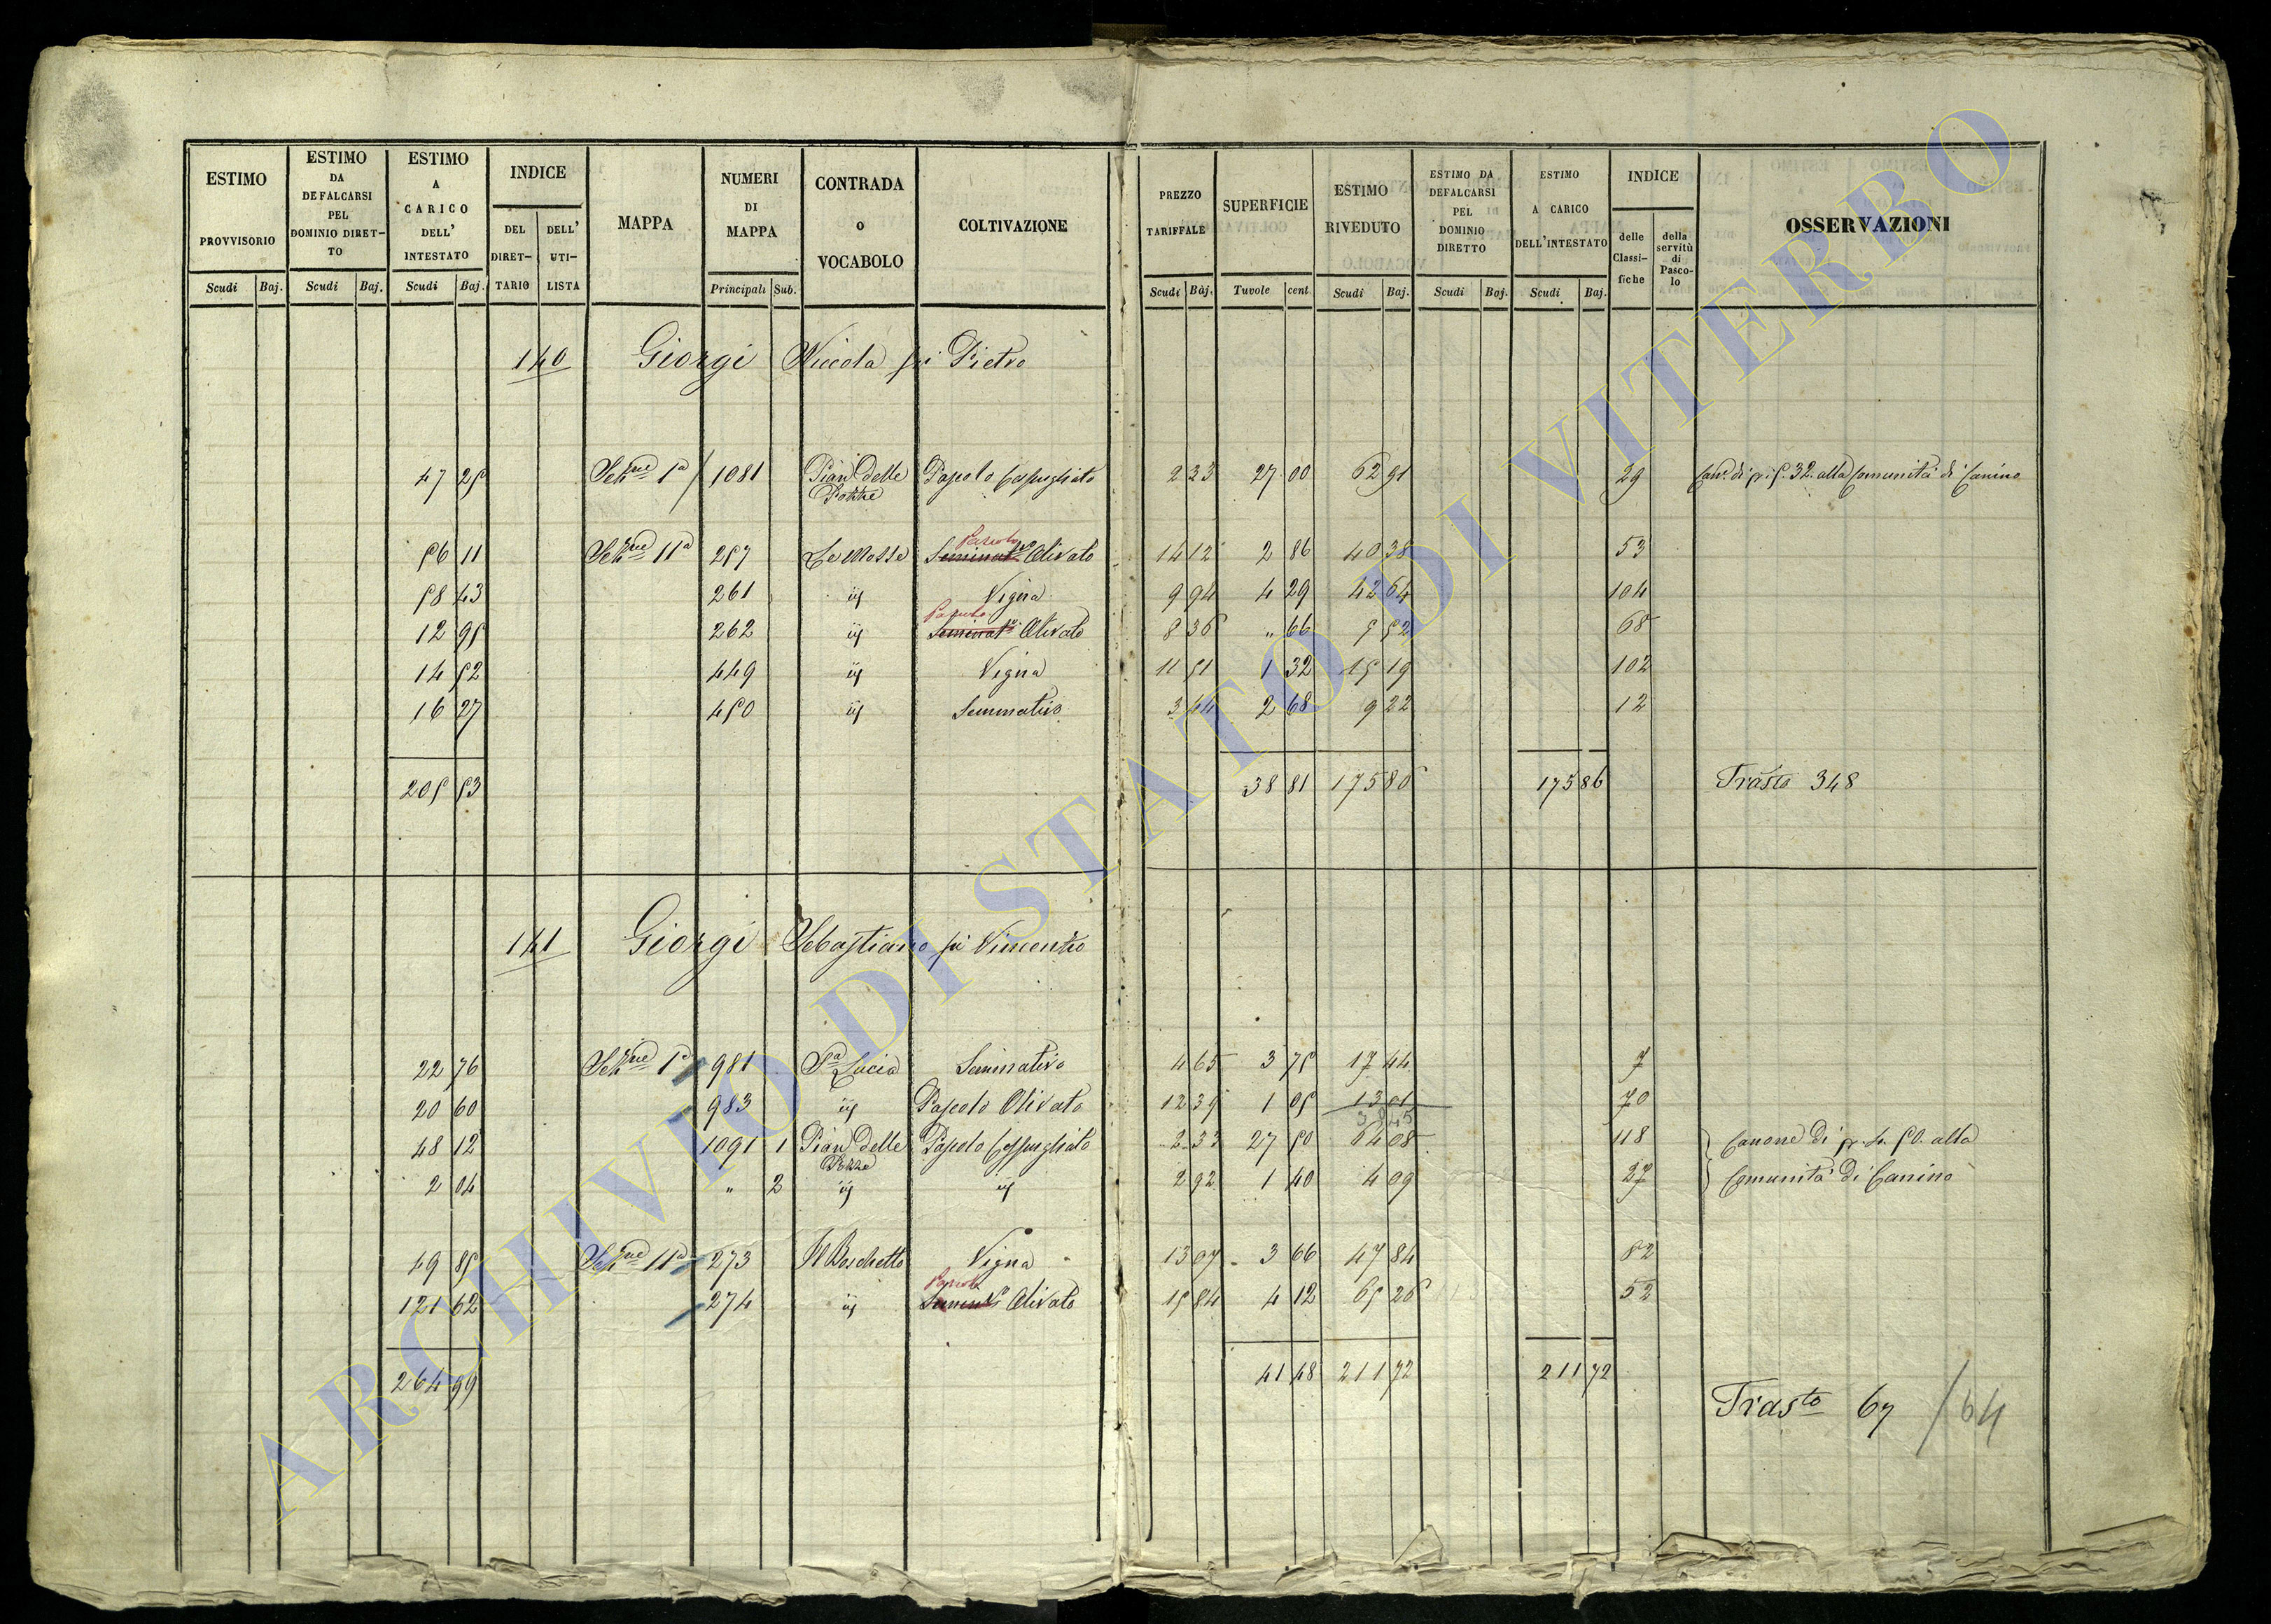 ESTIMO PROVVISORIO Scudi Baj.
ESTIMO DA DEFALCARSI PEL DOMINIO DIRETTO Scudi Baj.
ESTIMO A CARICO DELL' INTESTATO Scudi Baj.
INDICE DEL DIRETTARIO DELL' UTILISTA
MAPPA
NUMERI DI MAPPA Principali Sub.
CONTRADA o VOCABOLO
COLTIVAZIONE
PREZZO TARIFFALE Scudi Baj.
SUPERFICIE Tavole cent.
ESTIMO RIVEDUTO Scudi Baj.
ESTIMO DA DEFALCARSI PEL DOMINIO DIRETTO Scudi Baj.
ESTIMO A CARICO DELL'INTESTATO Scudi Baj.
INDICE delle Classifiche della servitù di Pascolo
OSSERVAZIONI
140 Giorgi Niccola fu Pietro
47 25 Sezne 1a 1081 Pian delle Pozze Pascolo Cespugliato 2 33 27 00 62 91 29 alla Comunità di Canino
56 11 Sezne 11a 257 Le Mosse Seminatvo Pascolo Olivato 14 12 2 86 40 38 53
58 43 261 iij Vigna 9 94 4 29 42 64 104
12 95 262 iij Seminatvo Pascolo Olivato 8 36 " 66 5 52 68
14 52 449 iij Vigna 11 51 1 32 15 19 102
16 27 450 iij Seminativo 3 44 2 68 9 22 12
205 53 38 81 175 86 175 86 Trasto 348
141 Giorgi Sebastiano fu Vincenzo
22 76 Sezne 1a 981 Sa Lucia Seminativo 4 65 3 75 17 44 7
20 60 983 iij Pascolo Olivato 12 39 1 05 13 01 70
30 45
48 12 1091 1 Pian delle Pozze Pascolo Cespugliato 2 33 27 50 64 08 118 Canone di alla
2 04 " 2 iij iij 2 92 1 40 4 09 27 Comunità di Canino
49 85 Sezne 11a 273 Il Boschetto Vigna 13 07 3 66 47 84 82
121 62 274 iij Seminvo Pascolo Olivato 15 84 4 12 65 26 52
264 99 41 48 211 72 211 72
Trasto 67 / 64
ARCHIVIO DI STATO DI VITERBO